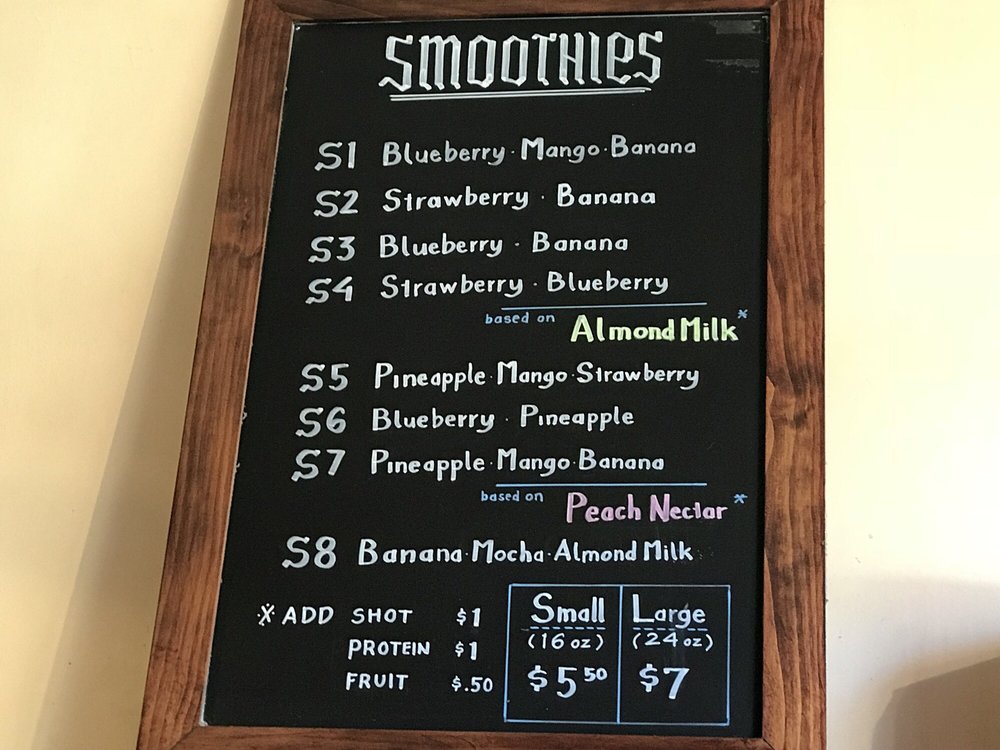 SMOOTHIES
S1 Blueberry · Mango · Banana
S2 Strawberry · Banana
S3 Blueberry · Banana
S4 Strawberry · Blueberry
based on Almond Milk *
S5 Pineapple · Mango · Strawberry
S6 Blueberry · Pineapple
S7 Pineapple · Mango · Banana
based on Peach Nectar *
S8 Banana · Mocha · Almond Milk
* ADD SHOT $1
PROTEIN $1
FRUIT $.50
Small Large
(16 oz) (24 oz)
$5 50 $7